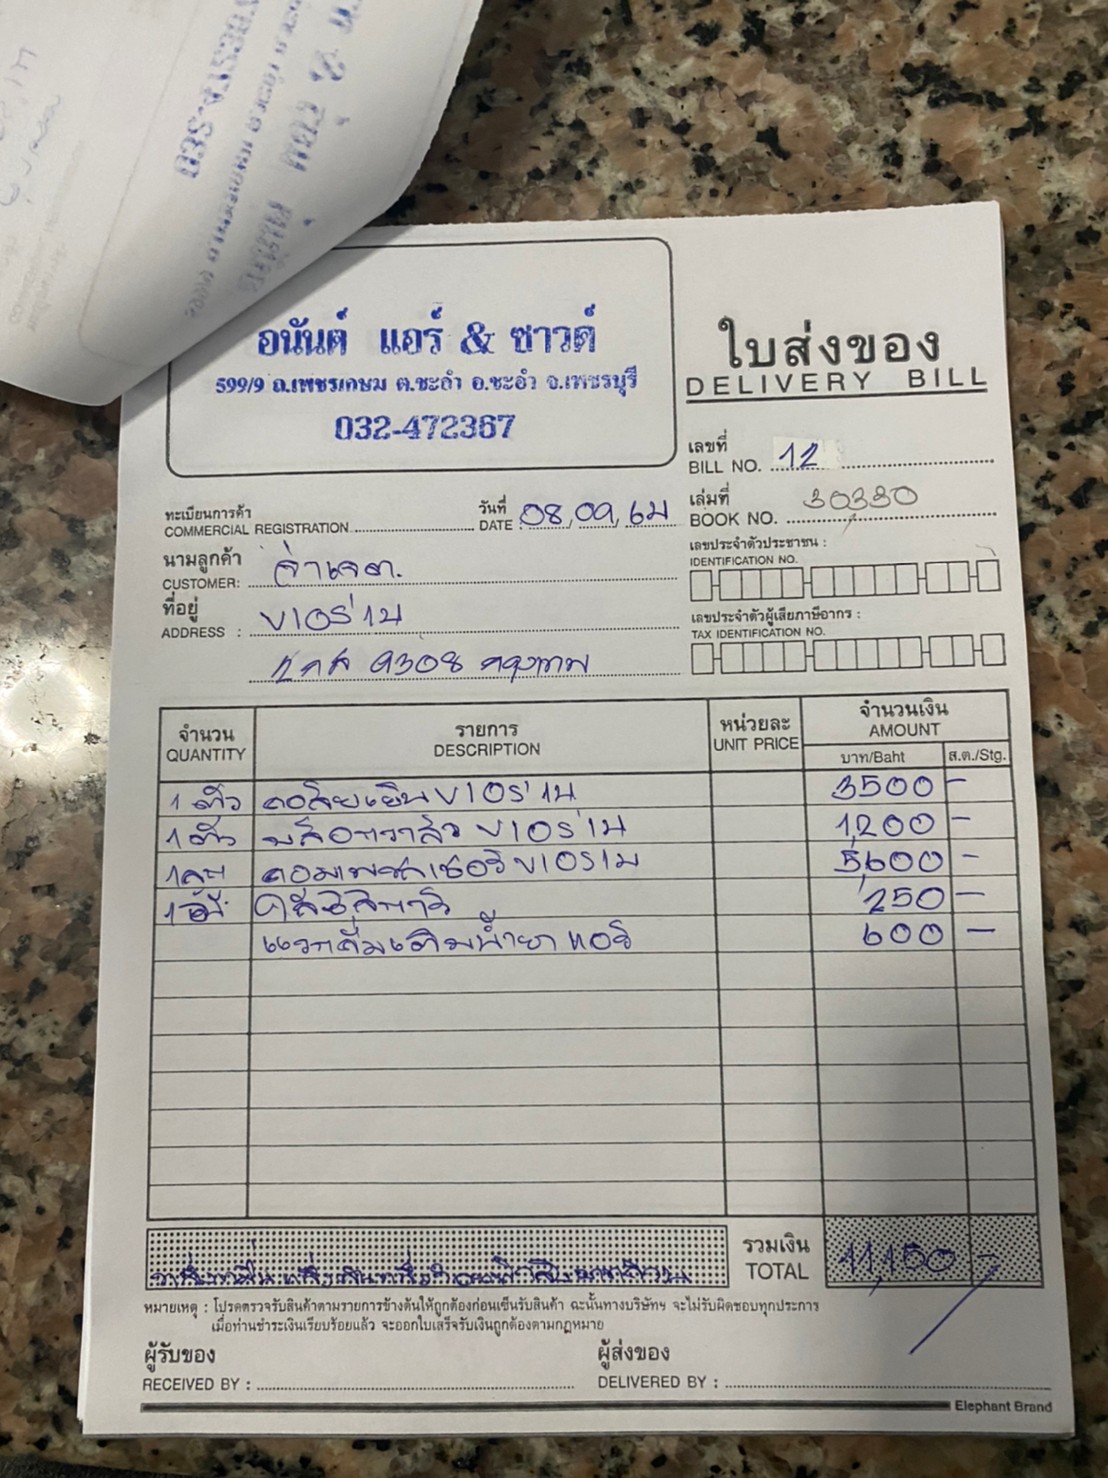 อนันต์ แอร์ & ซาวด์
599/9 ถ.เพชรเกษม ต.ชะอำ อ.ชะอำ จ.เพชรบุรี
032-472367
ใบส่งของ
DELIVERY BILL
เลขที่
BILL NO. 12
ทะเบียนการค้า
COMMERCIAL REGISTRATION
วันที่
DATE 08,09,64
เล่มที่
BOOK NO. 30330
นามลูกค้า
CUSTOMER: จ่าเจต.
ที่อยู่
ADDRESS : VIOSาน
9308 กรุงเทพ
เลขประจำตัวประชาชน :
IDENTIFICATION NO.
เลขประจำตัวผู้เสียภาษีอากร :
TAX IDENTIFICATION NO.
จำนวน
QUANTITY
รายการ
DESCRIPTION
หน่วยละ
UNIT PRICE
จำนวนเงิน
AMOUNT
บาท/Baht
ส.ต./Stg.
1 ตัว คอล์ยเย็น 3500 -
1 ตัว 1,200 -
5,600 -
250 -
แวคคั่มเติมน้ำยาแอร์ 600 -
รวมเงิน
TOTAL 11,150 -
หมายเหตุ : โปรดตรวจรับสินค้าตามรายการข้างต้นให้ถูกต้องก่อนเซ็นรับสินค้า ฉะนั้นทางบริษัทฯ จะไม่รับผิดชอบทุกประการ
เมื่อท่านชำระเงินเรียบร้อยแล้ว จะออกใบเสร็จรับเงินถูกต้องตามกฎหมาย
ผู้รับของ
RECEIVED BY :
ผู้ส่งของ
DELIVERED BY :
Elephant Brand